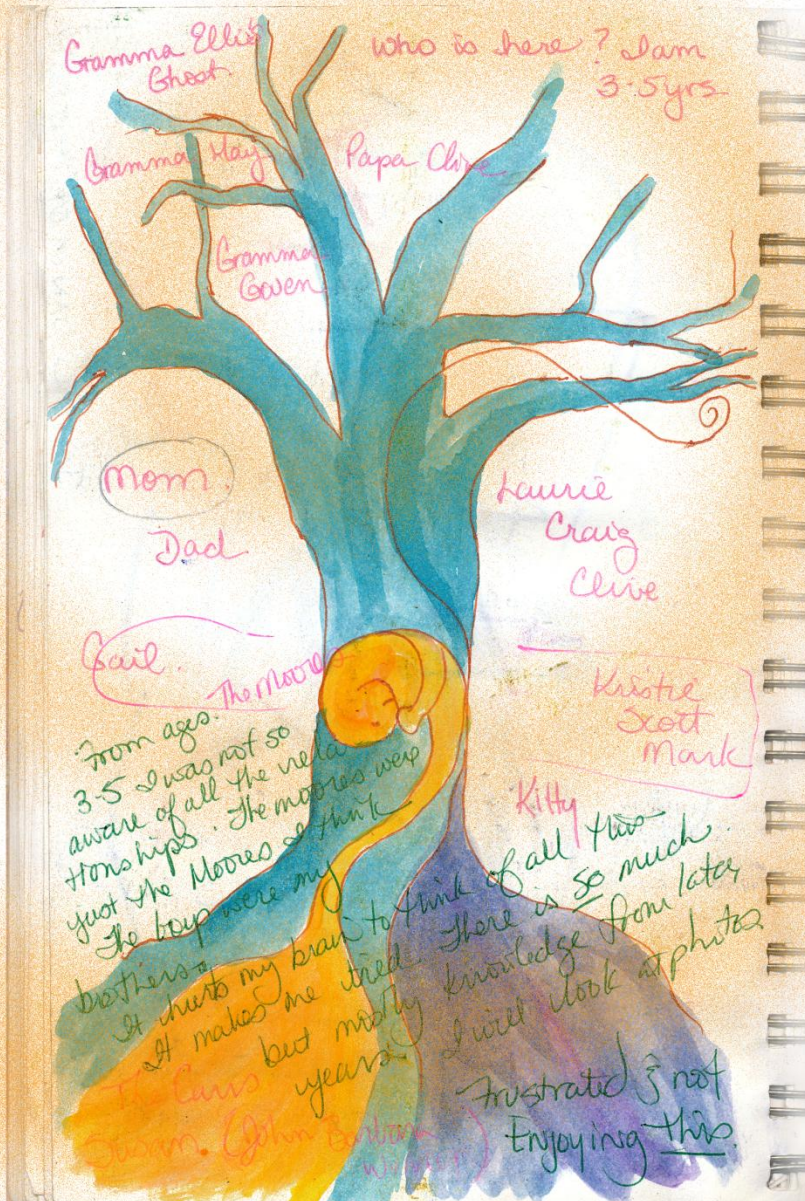 Gramma Ellis
Ghost.
who is here? I am
3-5yrs
Gramma May
Papa Clive
Gramma
Gowen
Mom.
Dad.
Laurie
Craig
Clive
Gail.
The Moores
Kristie
Scott
Mark
Kitty
From ages.
3-5 I was not so
aware of all the rela
tionships. The moores were
just the Moores I think
The boys were my
brothers.
It hurts my brain to think of all this.
It makes me tired. There is so much
but mostly knowledge from later
years. I will look at photos
Frustrated & not
Enjoying this.
The Carrs
Susan. (John Barbara
)